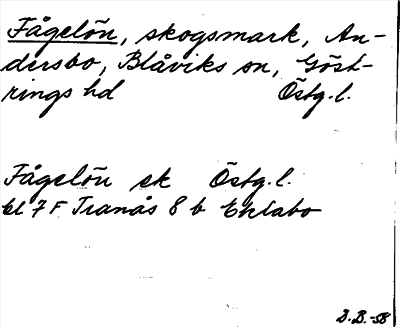 Fågelön, skogsmark, An-
dersbo, Blåviks sn, Göst-
rings hd Östg.l.
Fågelön sk Östg.l.
bl 7 F Tranås 8 b Ehlabo
D.B.-58